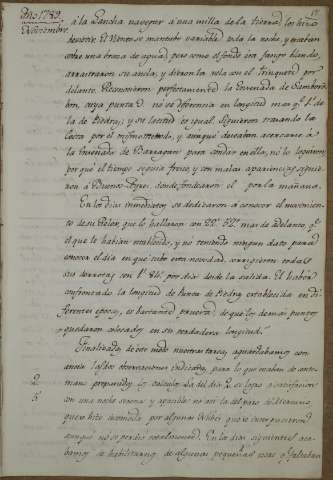 Año 1789
Noviembre
17
á la Lancha navegar á una milla de la tierra, los hizo
desistir. El Viento se mantubo variable toda la noche, y estaban
sobre una braza de agua; pero como el fondo era fango blando,
arrastraron su ancla, y dieron la vela con el Trinquete por
delante. Reconocieron perfectamente la Ensenada de Samborom-
bon, cuya punta no se diferencia en longitud mas q.e 1' de
la de Piedras; y su latitud es igual. Siguieron trazando la
Costa por el mismo metodo, y aunque deseaban acercarse á
la Ensenada de Barragan para sondar en ella, no lo lograron
por que el tiempo seguia fresco, y con malas apariencias siguie-
ron á Buenos Ayres, donde fondearon el por la mañana.
En los dias inmediatos se dedicaron á conocer el movimien-
to de su Relox, que lo hallaron con mas de adelanto, q.e
el que le habian establecido, y no teniendo ningun dato para
conocer el dia en que hubo esta novedad, corrigieron todas
sus derrotas con por dia desde la salida. El haber
confrontado la longitud de Punta de Piedras establecida en di-
ferentes epocas, es bastante prueva, de que los demas puntos
quedaron colocados en su verdadera longitud.
Finalizadas de este modo nuestras tareas, aguardabamos con
ansia las dos observaciones indicadas, para lo que estaban de ante-
mano preparados los calculos. La del dia 2 se logró á satisfaccion
con una noche serena y apacible: no asi la del paso de Mercurio,
que se hizo incomoda por algunas Nubes que se interpusieron
aunque no se perdio enteramente. En los dias siguientes aca-
bamos de habilitarnos de algunas pequeñas cosas q.e faltaban
2
5